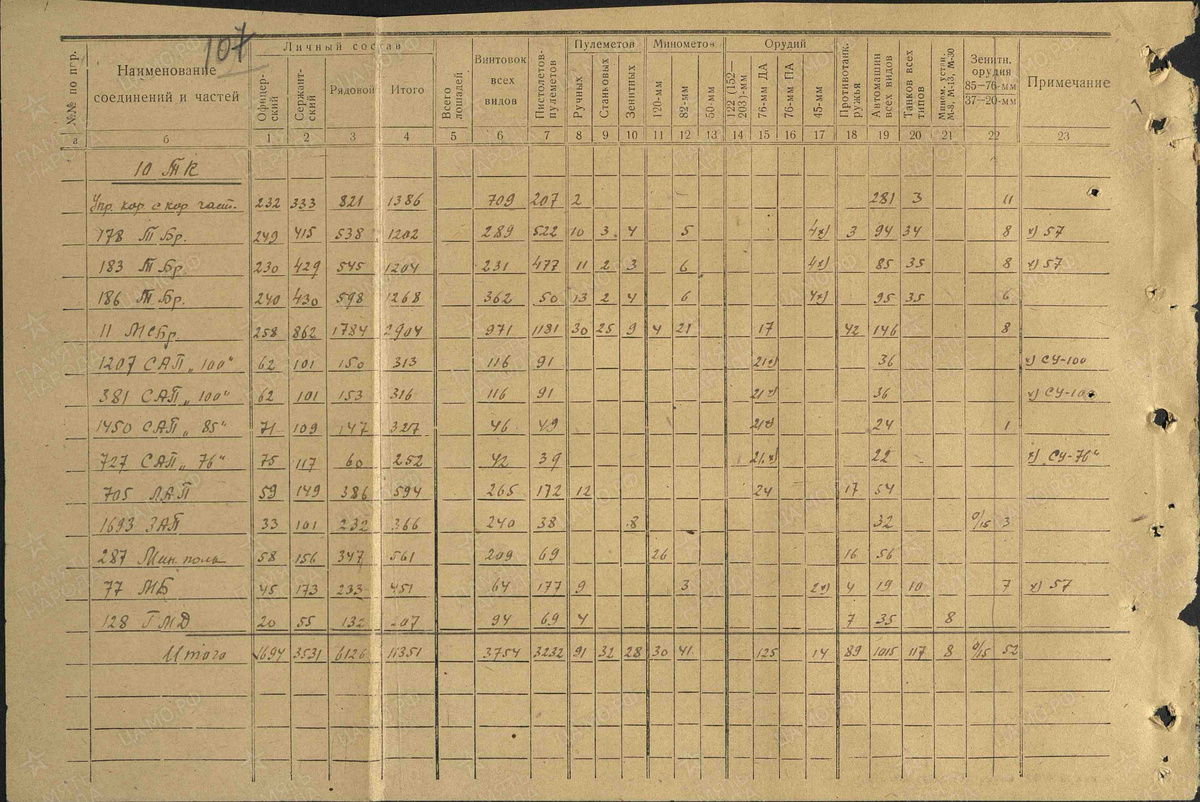 107
№№ по пор.
Наименование соединений и частей
Личный состав
Офицерский
Сержантский
Рядовой
Итого
Всего лошадей
Винтовок всех видов
Пистолетов-пулеметов
Пулеметов
Ручных
Станковых
Зенитных
Минометов
120-мм
82-мм
50-мм
Орудий
122 (152—203)-мм
76-мм ДА
76-мм ПА
45-мм
Противотанк. ружья
Автомашин всех видов
Танков всех типов
Мином. устан. М-8, М-13, М-30
Зенитн. орудия 85—76-мм 37—20-мм
Примечание
г б 1 2 3 4 5 6 7 8 9 10 11 12 13 14 15 16 17 18 19 20 21 22 23
10 ТК
Упр. кор. с кор. част. 232 333 821 1386 709 207 2 281 3 11
178 ТБр. 249 415 538 1202 289 522 10 3 4 5 4х) 3 94 34 8 х) 57
183 ТБр. 230 429 545 1204 231 477 11 2 3 6 4х) 85 35 8 х) 57
186 ТБр. 240 430 598 1268 362 50 13 2 4 6 4х) 95 35 6
11 МСБр. 258 862 1784 2904 971 1181 30 25 9 4 21 17 42 146 8
1207 САП „100" 62 101 150 313 116 91 21х) 36 х) СУ-100
381 САП „100" 62 101 153 316 116 91 21х) 36 х) СУ-100
1450 САП „85" 71 109 147 327 46 49 21х) 24 1
727 САП „76" 75 117 60 252 42 39 21х) 22 х) „СУ-76"
705 ЛАП 59 149 386 594 265 172 12 24 17 54
1693 ЗАП 33 101 232 366 240 38 8 32 0/15 3
287 Мин. полк 58 156 347 561 209 69 26 16 56
77 МБ 45 173 233 451 64 177 9 3 2х) 4 19 10 7 х) 57
128 ГМД 20 55 132 207 94 69 4 7 35 8
Итого 1694 3531 6126 11351 3754 3232 91 32 28 30 41 125 14 89 1015 117 8 0/15 52